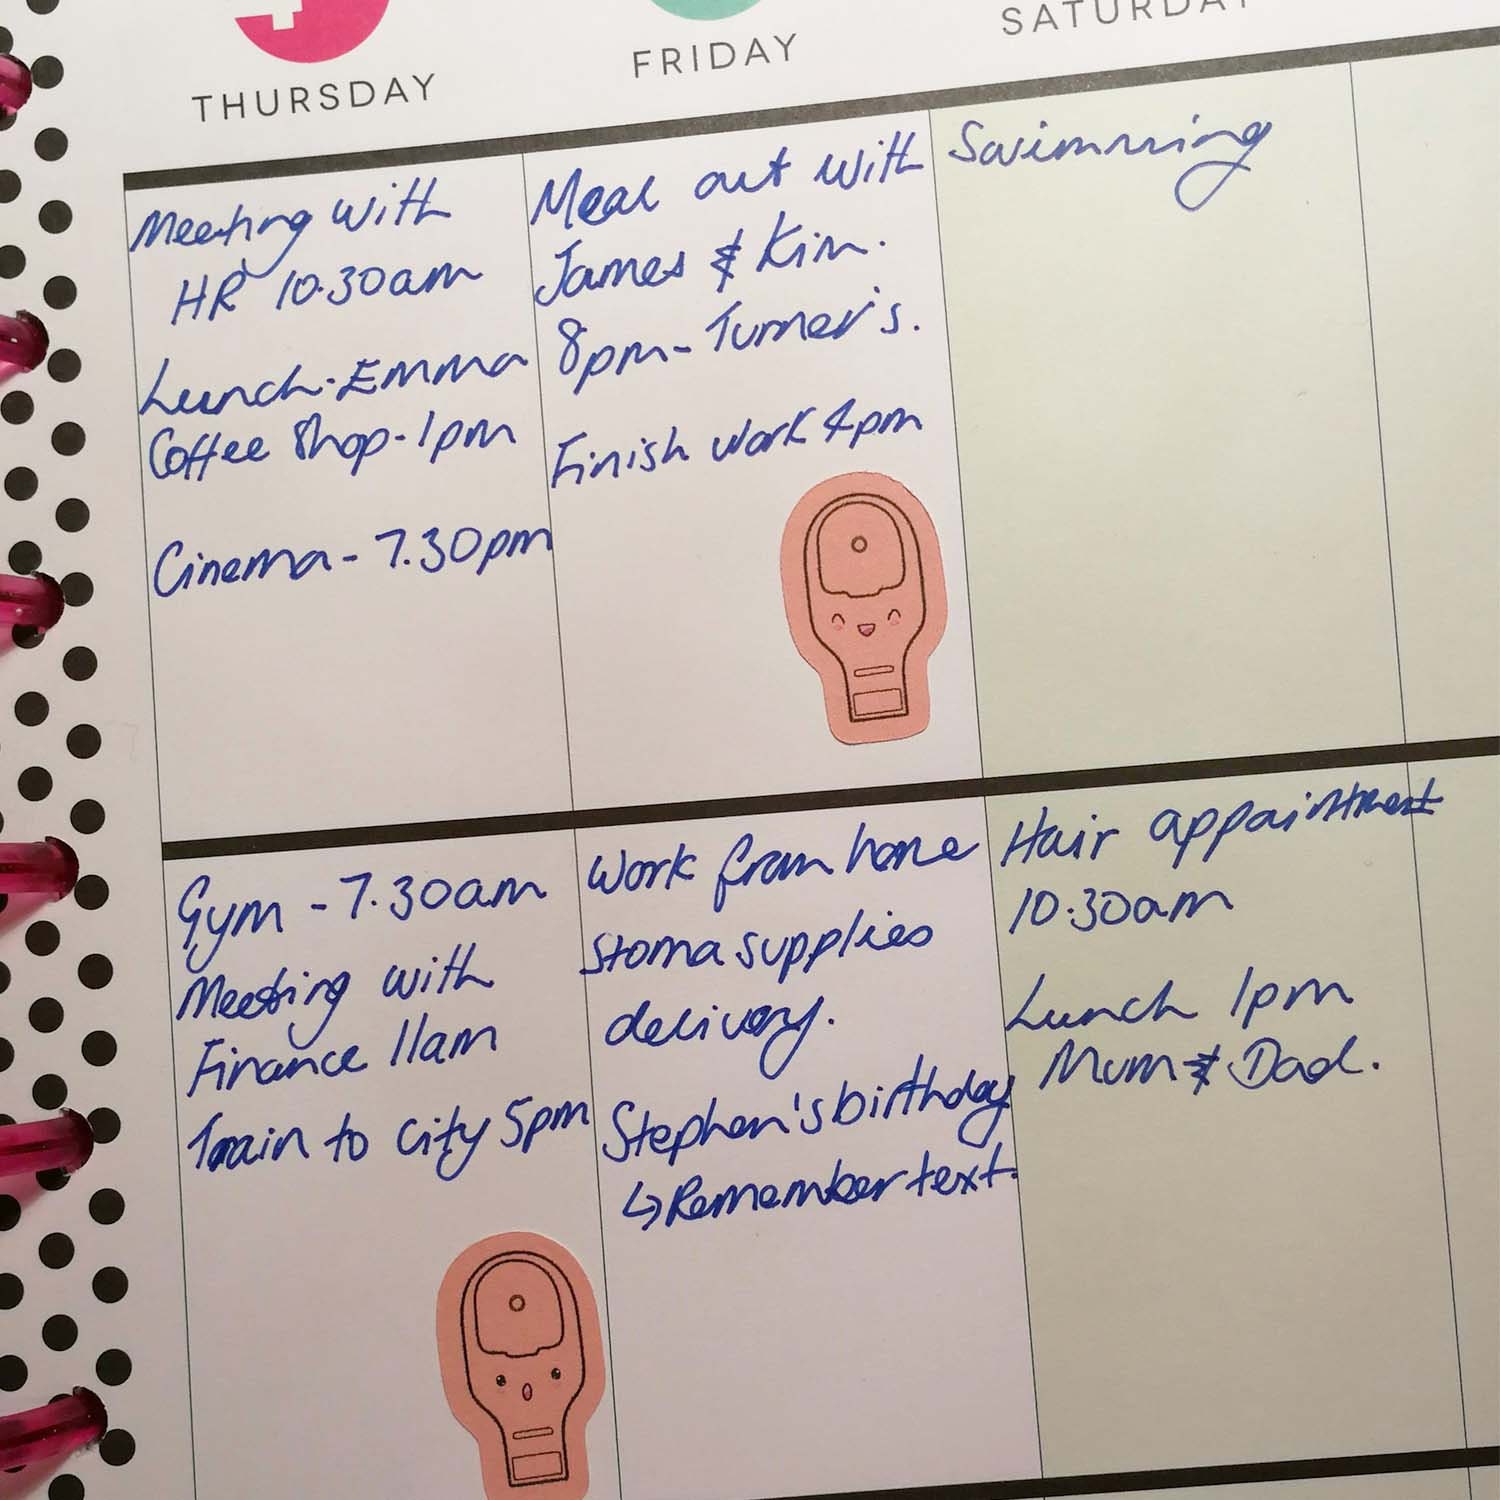 THURSDAY
FRIDAY
SATURDAY
Meeting with
HR 10.30am
Lunch - Emma
Coffee Shop - 1pm
Cinema - 7.30pm
Meal out with
James & Kim.
8pm - Turner's.
Finish work 4pm
Swimming
Gym - 7.30am
Meeting with
Finance 11am
Train to city 5pm
Work from home
Stoma supplies
delivery.
Stephen's birthday
↳ Remember text.
Hair appointment
10.30am
Lunch 1pm
Mum & Dad.